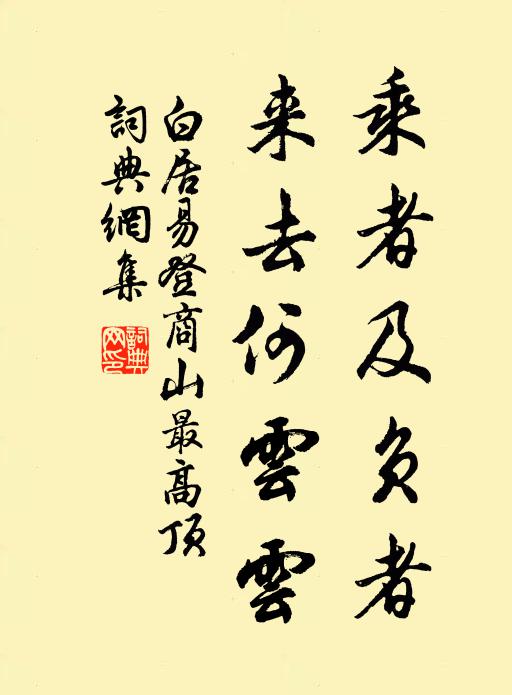 乘者及负者
来去何雲雲
白居易登商山最高顶
詞典網集
詞典網印